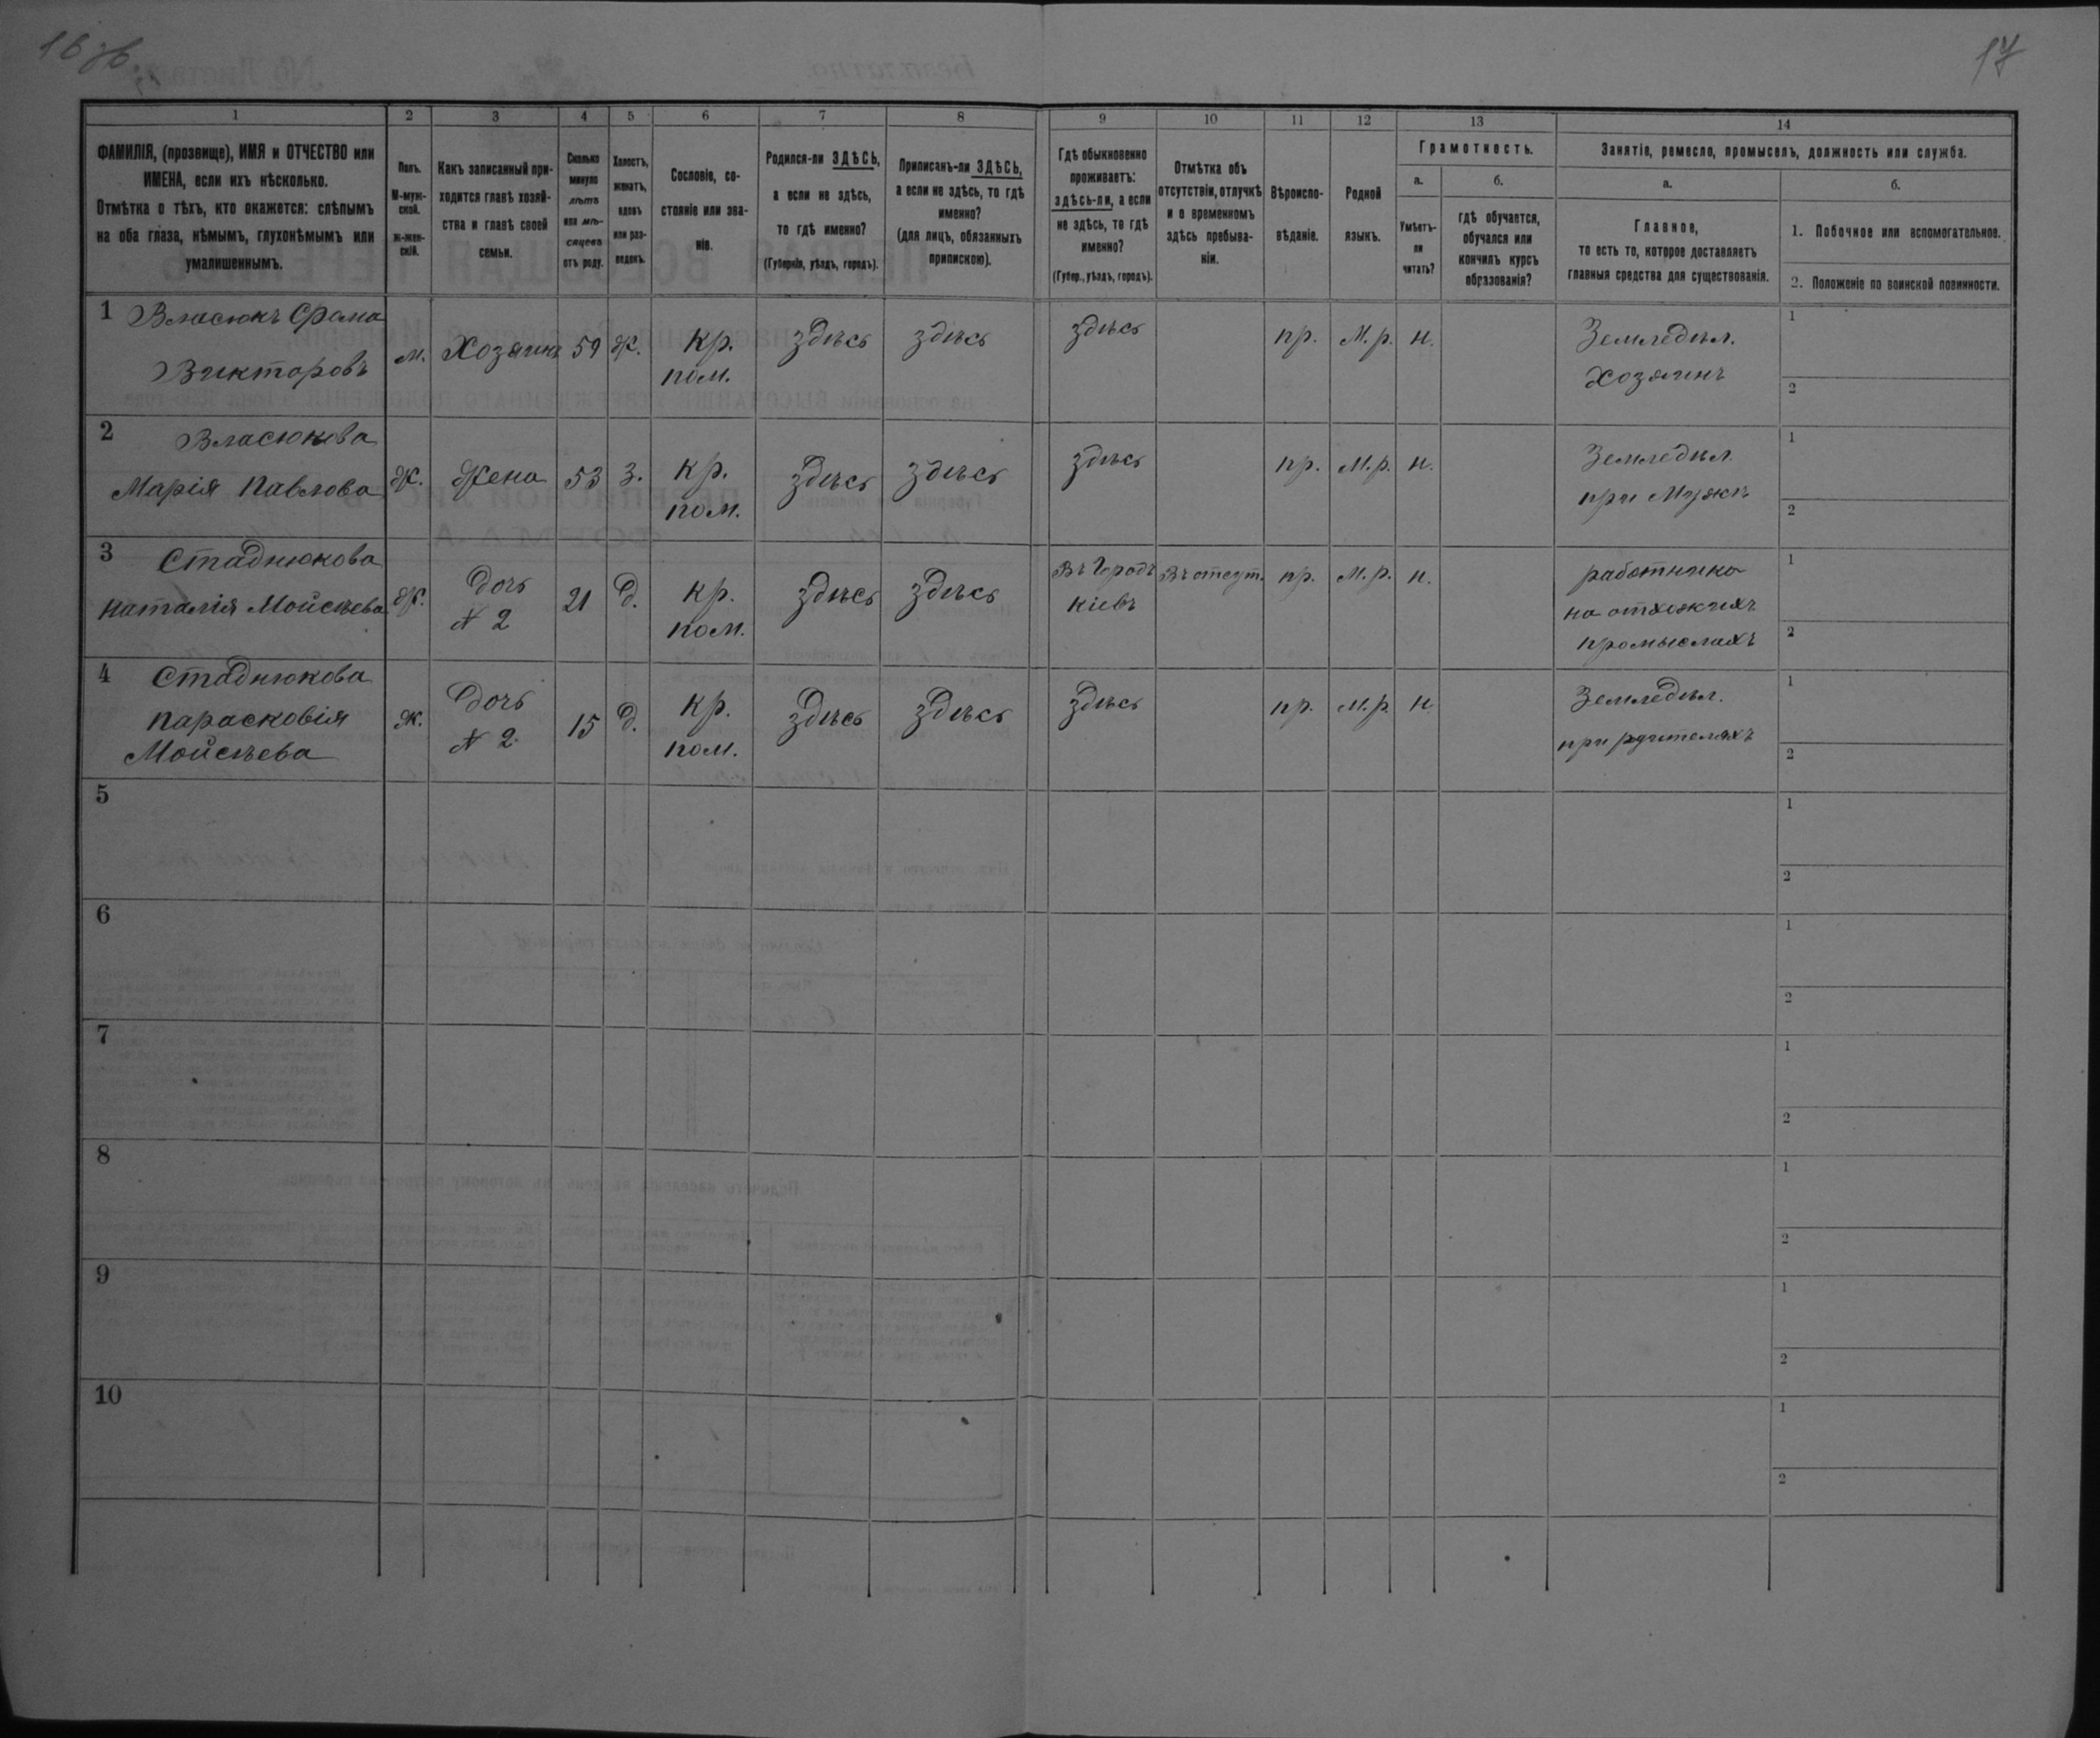 16 зв.
17
1
2
3
4
5
6
7
8
9
10
11
12
13
14
ФАМИЛІЯ, (прозвище), ИМЯ и ОТЧЕСТВО или
ИМЕНА, если ихъ нѣсколько.
Отмѣтка о тѣхъ, кто окажется: слѣпымъ
на оба глаза, нѣмымъ, глухонѣмымъ или
умалишеннымъ.
Полъ.
М-муж-
ской.
Ж-жен-
скій.
Какъ записанный при-
ходится главѣ хозяй-
ства и главѣ своей
семьи.
Сколько
минуло
лѣтъ
или мѣ-
сяцевъ
отъ роду.
Холостъ,
женатъ,
вдовъ
или раз-
веденъ.
Сословіе, со-
стояніе или зва-
ніе.
Родился-ли ЗДѢСЬ,
а если не здѣсь,
то гдѣ именно?
(Губернія, уѣздъ, городъ).
Приписанъ-ли ЗДѢСЬ,
а если не здѣсь, то гдѣ
именно?
(для лицъ, обязанныхъ
припискою).
Гдѣ обыкновенно
проживаетъ:
здѣсь-ли, а если
не здѣсь, то гдѣ
именно?
(Губер., уѣздъ, городъ).
Отмѣтка объ
отсутствіи, отлучкѣ
и о временномъ
здѣсь пребыва-
ніи.
Вѣроиспо-
вѣданіе.
Родной
языкъ.
Грамотность.
а.
Умѣетъ-
ли
читать?
б.
гдѣ обучается,
обучался или
кончилъ курсъ
образованія?
Занятіе, ремесло, промыселъ, должность или служба.
а.
Главное,
то есть то, которое доставляетъ
главныя средства для существованія.
б.
1. Побочное или вспомогательное.
2. Положеніе по воинской повинности.
1
Власюкъ Фома
Викторовъ
м.
Хозяинъ
59
Ж.
Кр.
пом.
здѣсь
здѣсь
здѣсь
пр.
М. р.
н.
Земледѣл.
Хозяинъ
1
2
2
Власюкова
Марія Павлова
Ж.
Жена
53
З.
Кр.
пом.
здѣсь
здѣсь
здѣсь
пр.
М. р.
н.
Земледѣл.
при Мужѣ
1
2
3
Стаднюкова
Наталія Мойсѣева
Ж.
Дочь
N 2
21
Д.
Кр.
пом.
здѣсь
здѣсь
Въ Городѣ
Кіевѣ
Въ отсут.
пр.
М. р.
н.
работника
на отхожихъ
промыслахъ
1
2
4
Стаднюкова
Парасковія
Мойсѣева
ж.
Дочь
N 2.
15
Д.
Кр.
пом.
здѣсь
здѣсь
здѣсь
пр.
М. р.
н
Земледѣл.
при родителяхъ
1
2
5
1
2
6
1
2
7
1
2
8
1
2
9
1
2
10
1
2